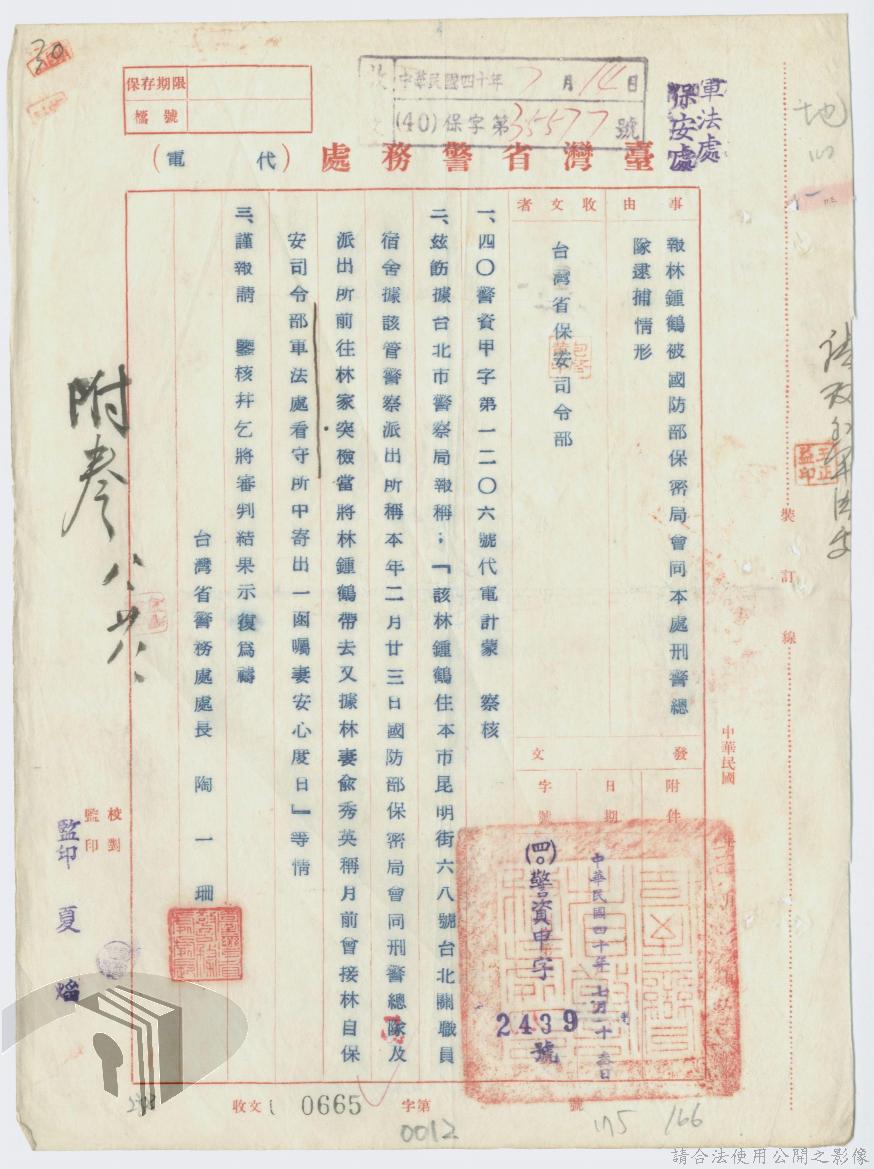 保存期限
檔號
收文
中華民國四十年7月14日
(40)保字第35577號
軍法處
保安處
臺灣省警務處（代電）
事由
報林鍾鶴被國防部保密局會同本處刑警總
隊逮捕情形
收文者
台灣省保安司令部
發文
附件
日期
中華民國四十年七月十叁日
字號
(四〇)警資甲字
2439號
一、四〇警資甲字第一二〇六號代電計蒙　察核
二、玆飭據台北市警察局報稱；「該林鍾鶴住本市昆明街六八號台北關職員
宿舍據該管警察派出所稱本年二月廿三日國防部保密局會同刑警總隊及
派出所前往林家突檢當將林鍾鶴帶去又據林妻俞秀英稱月前曾接林自保
安司令部軍法處看守所中寄出一函囑妻安心度日」等情
三、謹報請　鑒核幷乞將審判結果示復爲禱
台灣省警務處處長　陶一珊
附卷
八、廿八、
校對
監印
監印　夏
裝訂線
中華民國
收文
0665
字第
號
0012
175
166
30
請合法使用公開之影像